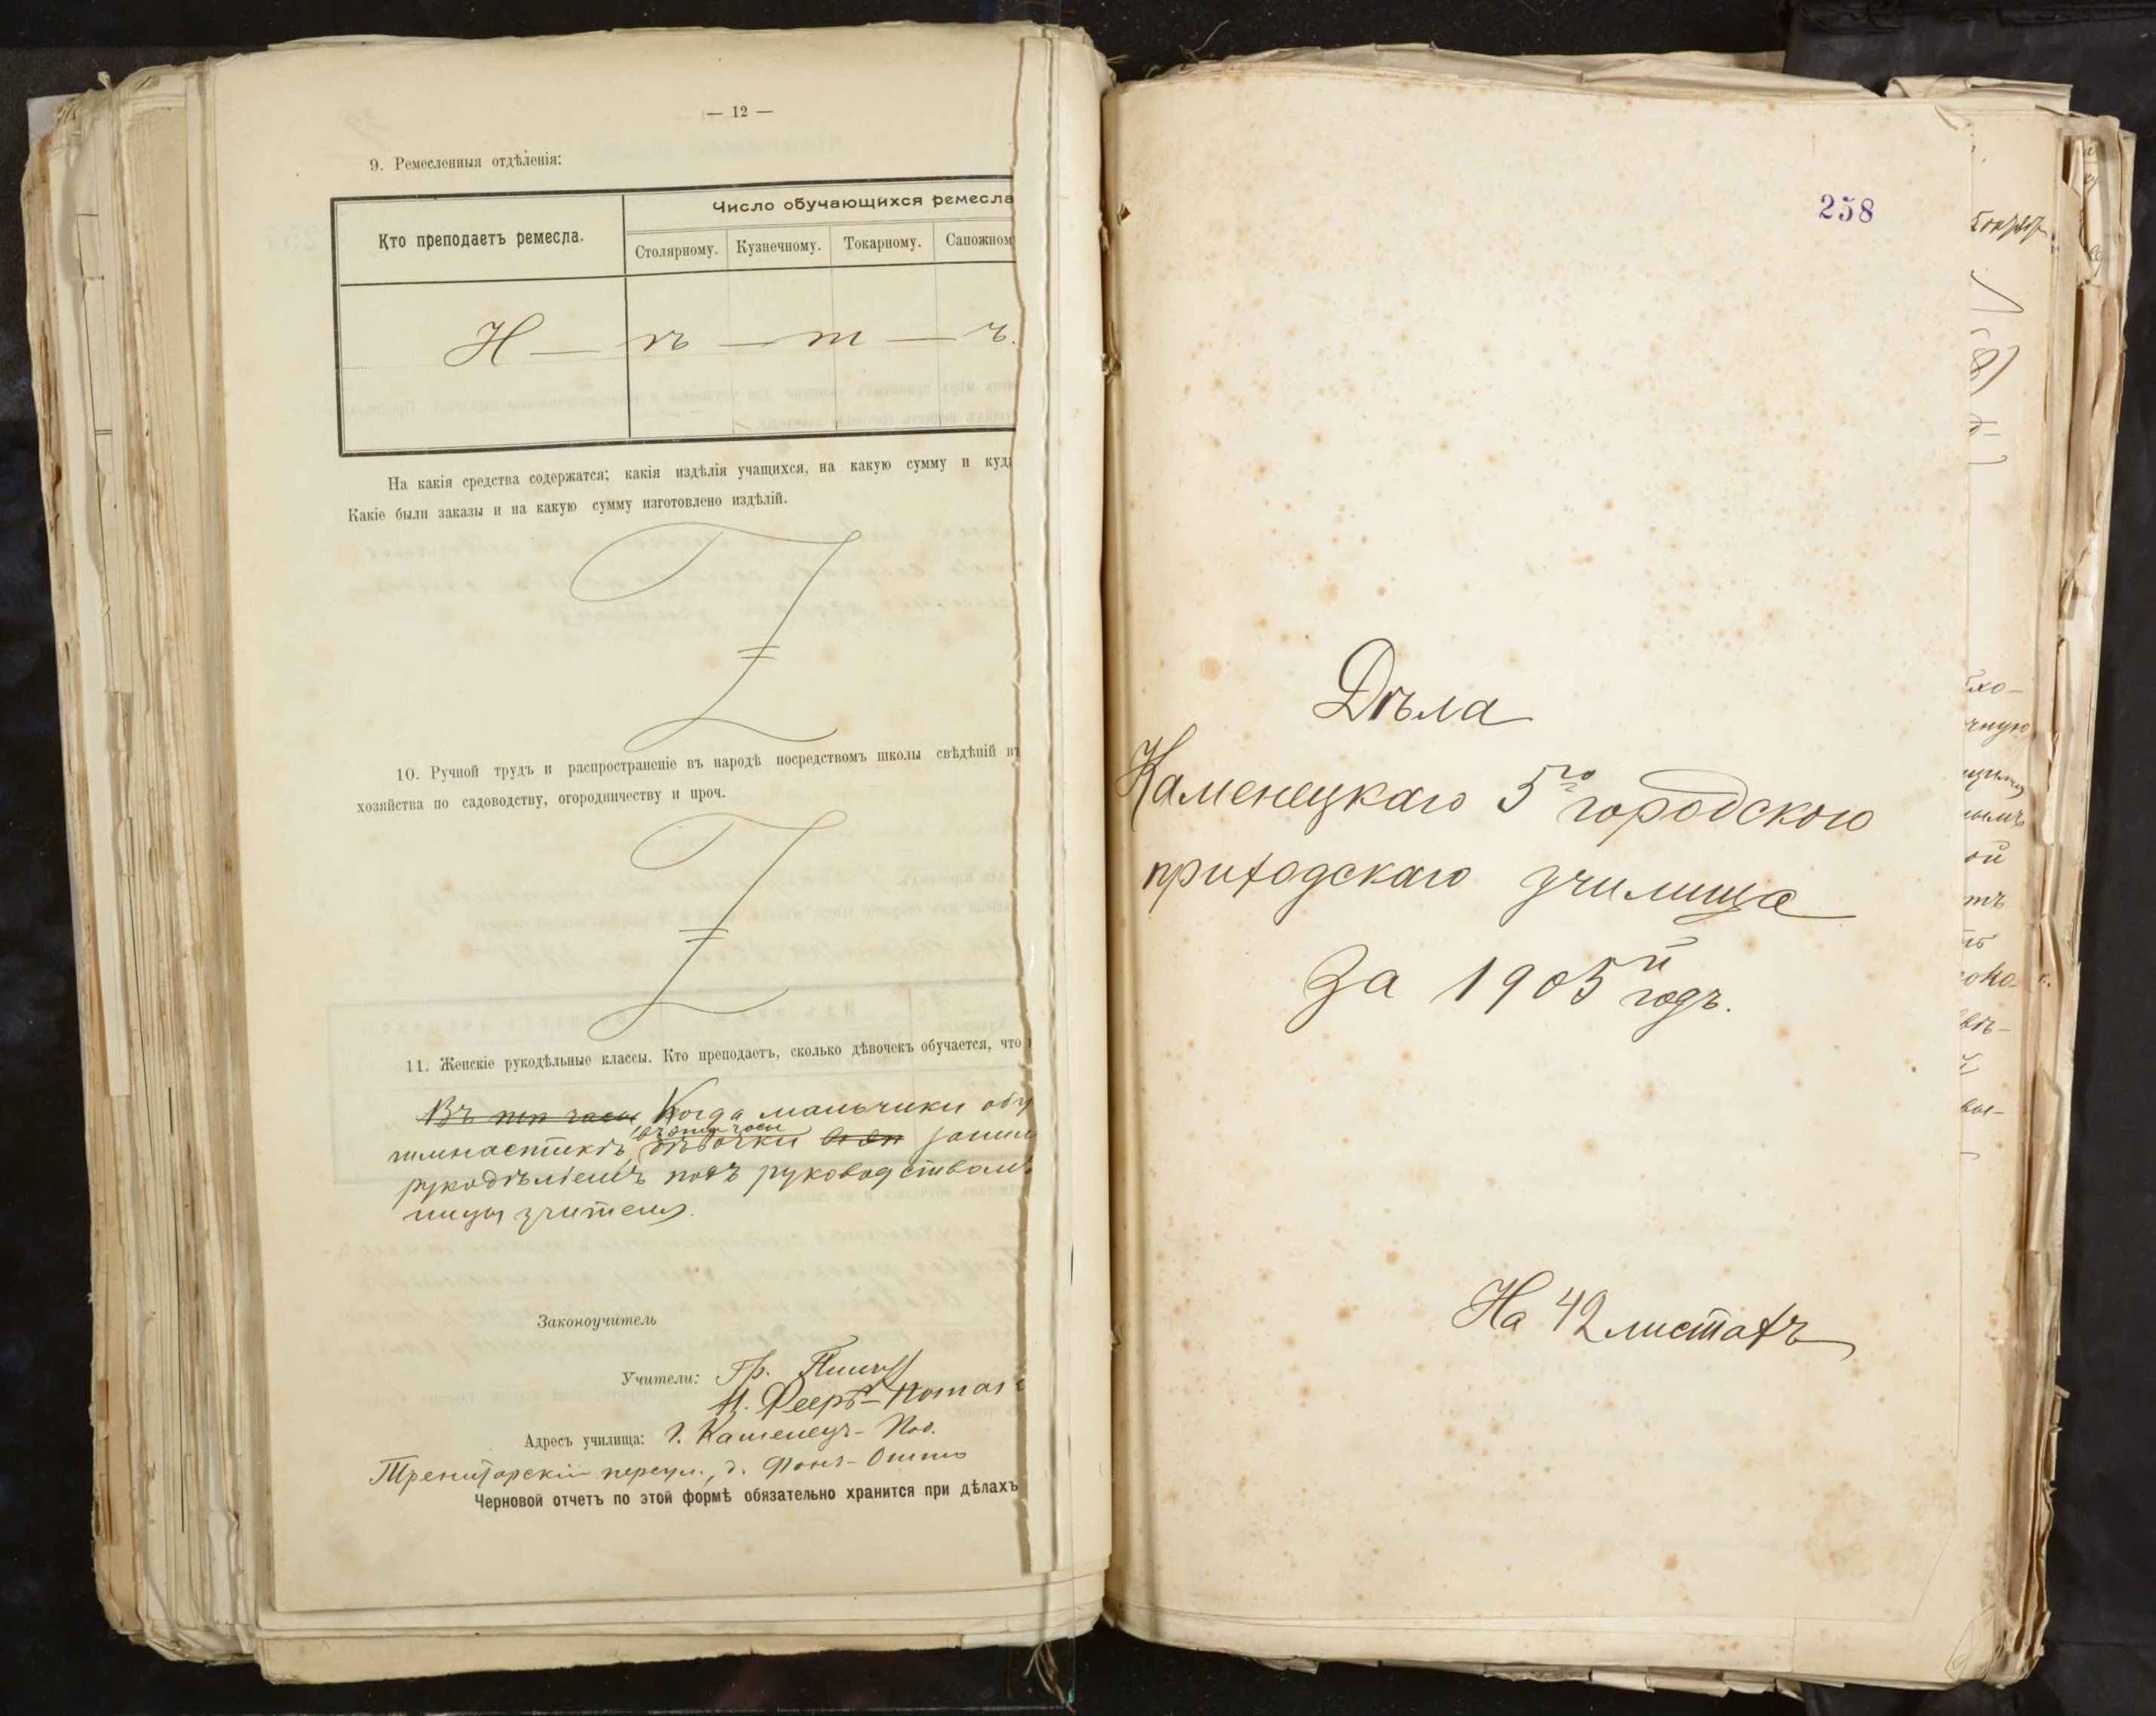 — 12 —
9. Ремесленныя отдѣленія:
Кто преподаетъ ремесла.
Число обучающихся ремесла
Столярному. Кузнечному. Токарному. Сапожном
Н — ѣ — т — ъ.
На какія средства содержатся; какія издѣлія учащихся, на какую сумму и куда
Какіе были заказы и на какую сумму изготовлено издѣлій.
10. Ручной трудъ и распространеніе въ народѣ посредствомъ школы свѣдѣній въ
хозяйства по садоводству, огородничеству и проч.
11. Женскіе рукодѣльные классы. Кто преподаетъ, сколько дѣвочекъ обучается, что
Когда мальчики обу
гимнастикѣ, въ эти часы дѣвочки
рукодѣліемъ подъ руководствомъ
ницы учителя.
Законоучитель
Учители: Гр.
Адресъ училища: г. Каменецъ-Под.
Тринитарскій переул., д. Фонъ-Отто
Черновой отчетъ по этой формѣ обязательно хранится при дѣлахъ
258
Дѣла
Каменецкаго 5го городского
приходскаго училища
За 1905й годъ.
На 42 листахъ